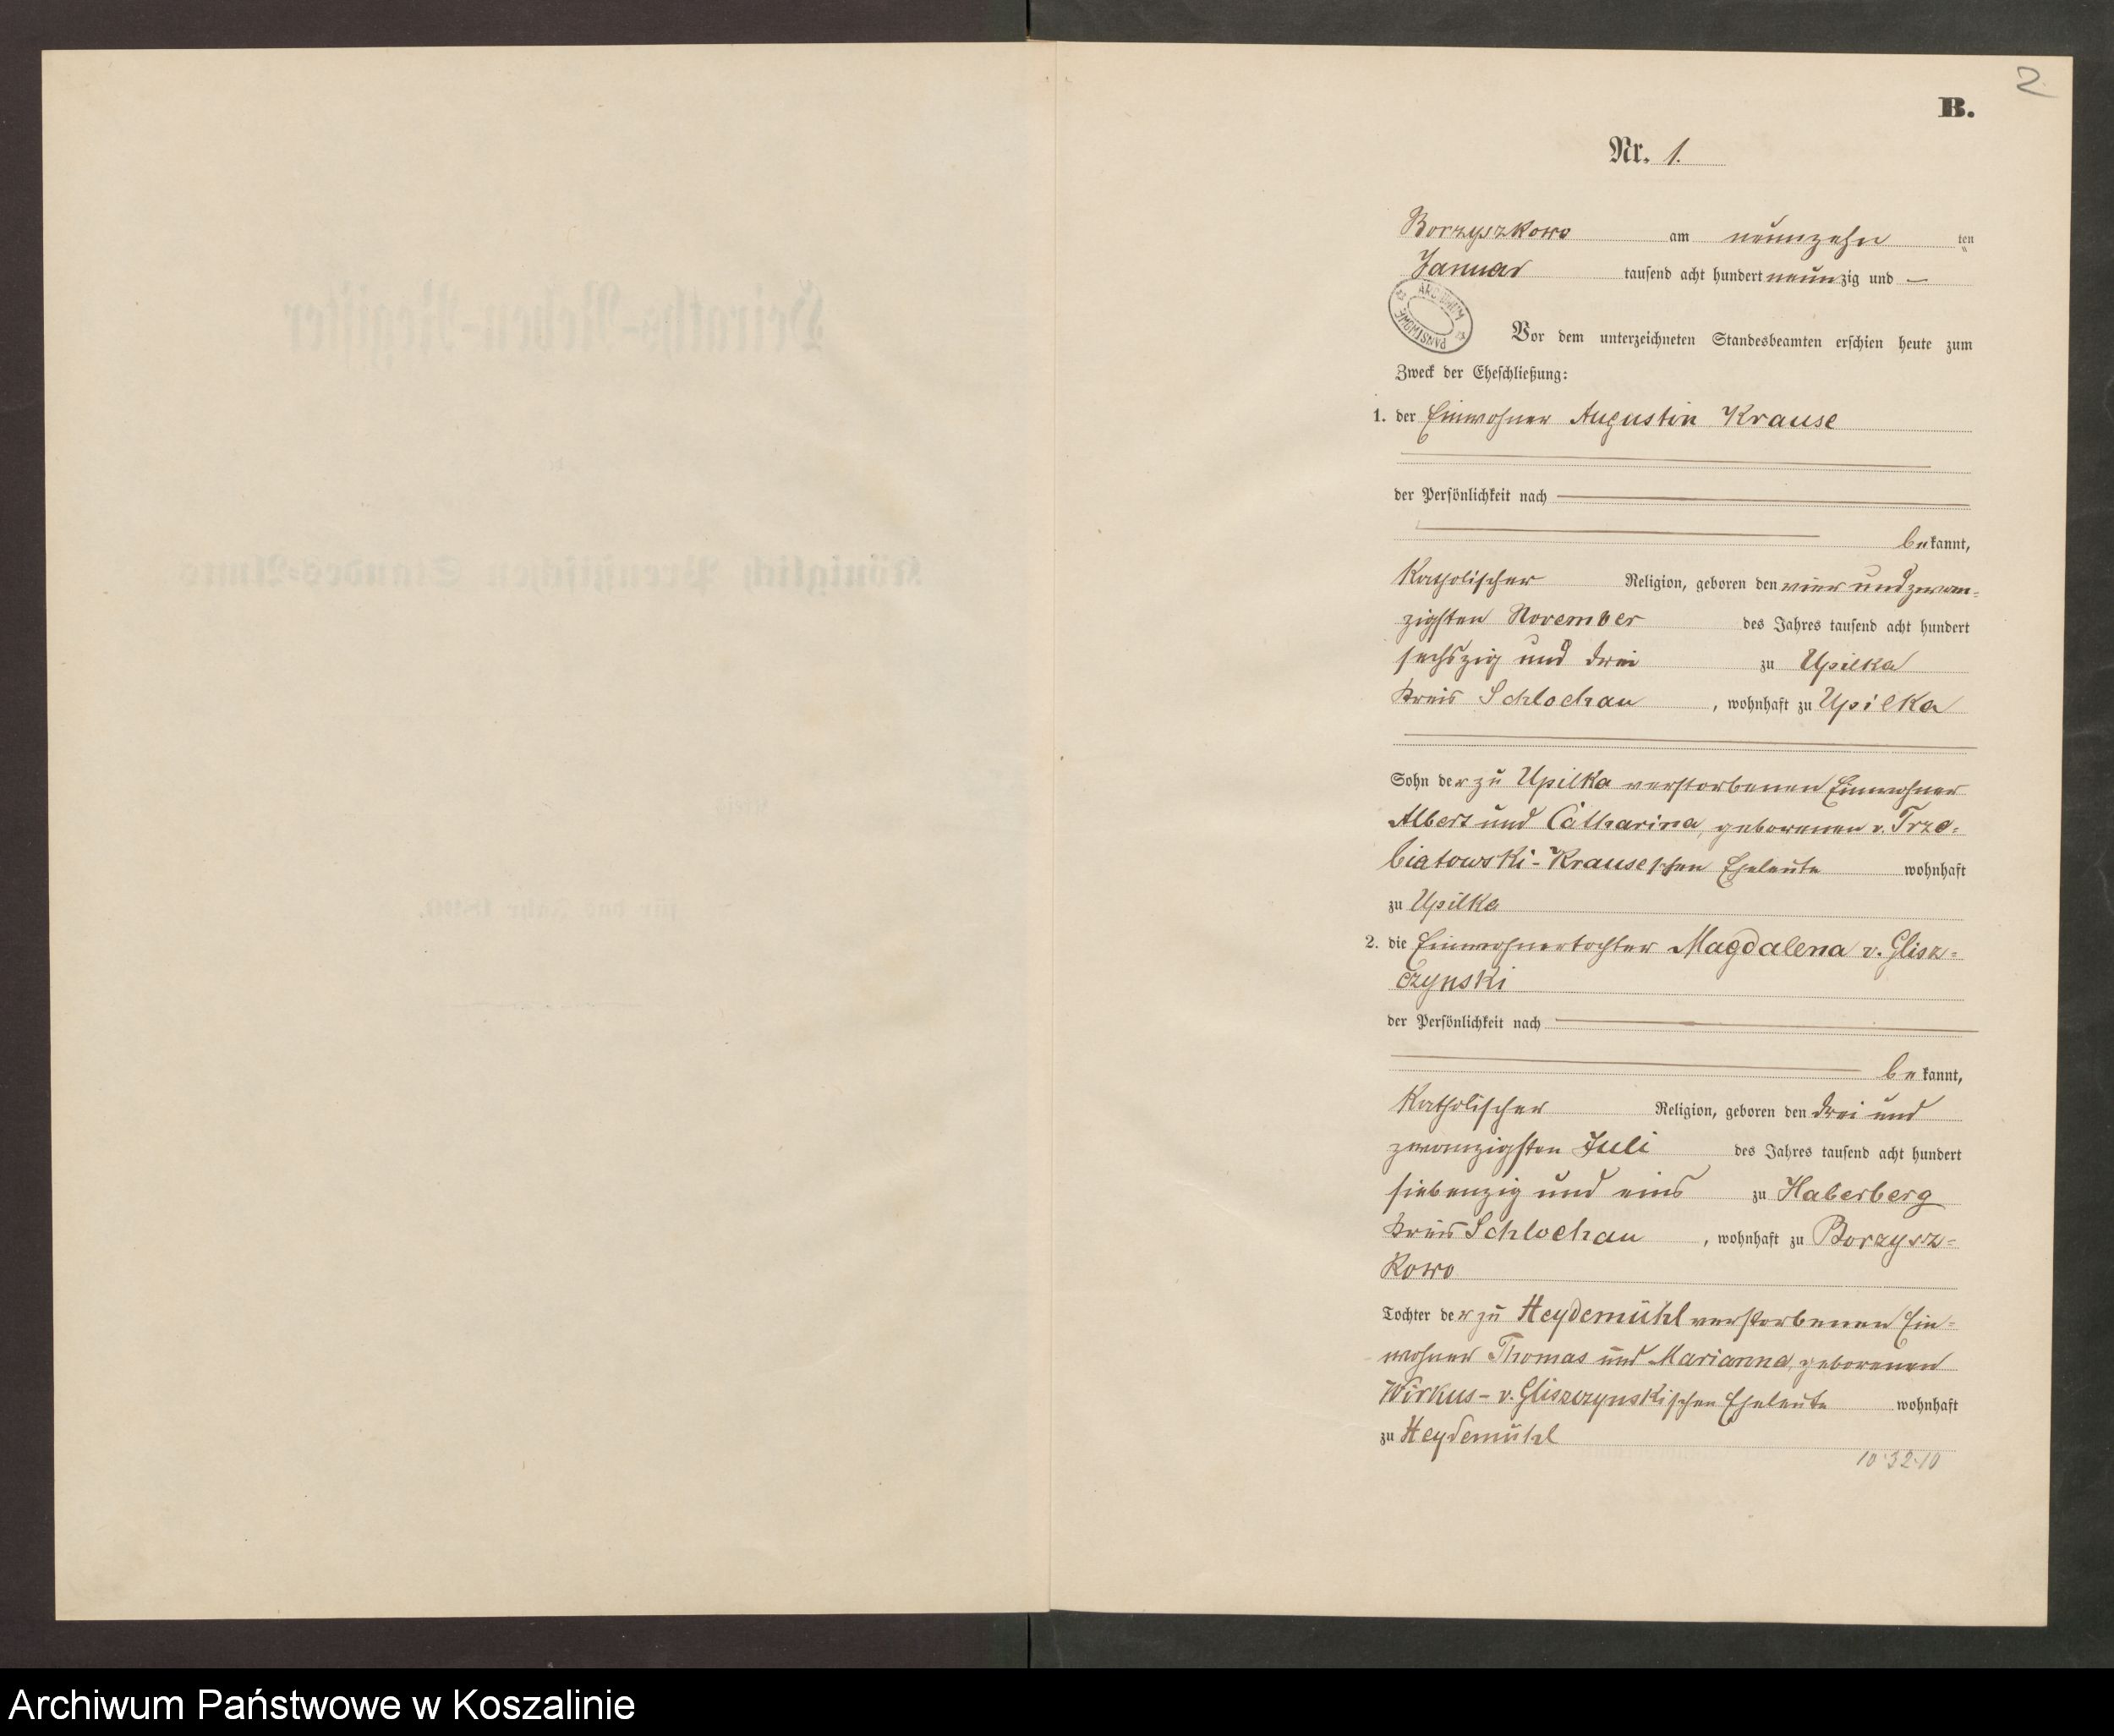 2
B.
Nr. 1.
Borzyszkowo am neunzehn ten
Januar tausend acht hundert neunzig und —
ARCHIWUM PAŃSTWOWE
Vor dem unterzeichneten Standesbeamten erschien heute zum
Zweck der Eheschließung:
1. der Einwohner Augustin Krause
der Persönlichkeit nach
bekannt,
Katholischer Religion, geboren den vier und zwan-
zigsten November des Jahres tausend acht hundert
sechszig und drei zu Upilka
Kreis Schlochau, wohnhaft zu Upilka
Sohn der zu Upilka verstorbenen Einwohner
Albert und Catharina, geborenen v. Trze-
biatowski-Krauseschen Eheleute wohnhaft
zu Upilka
2. die Einwohnertochter Magdalena v. Glisz-
czynski
der Persönlichkeit nach
bekannt,
Katholischer Religion, geboren den drei und
zwanzigsten Juli des Jahres tausend acht hundert
siebenzig und eins zu Haberberg
Kreis Schlochau, wohnhaft zu Borzysz-
kowo
Tochter der zu Heydemühl verstorbenen Ein-
wohner Thomas und Marianna, geborenen
Wirkus-v. Gliszczynskischen Eheleute wohnhaft
zu Heydemühl
10 32 10
Archiwum Państwowe w Koszalinie